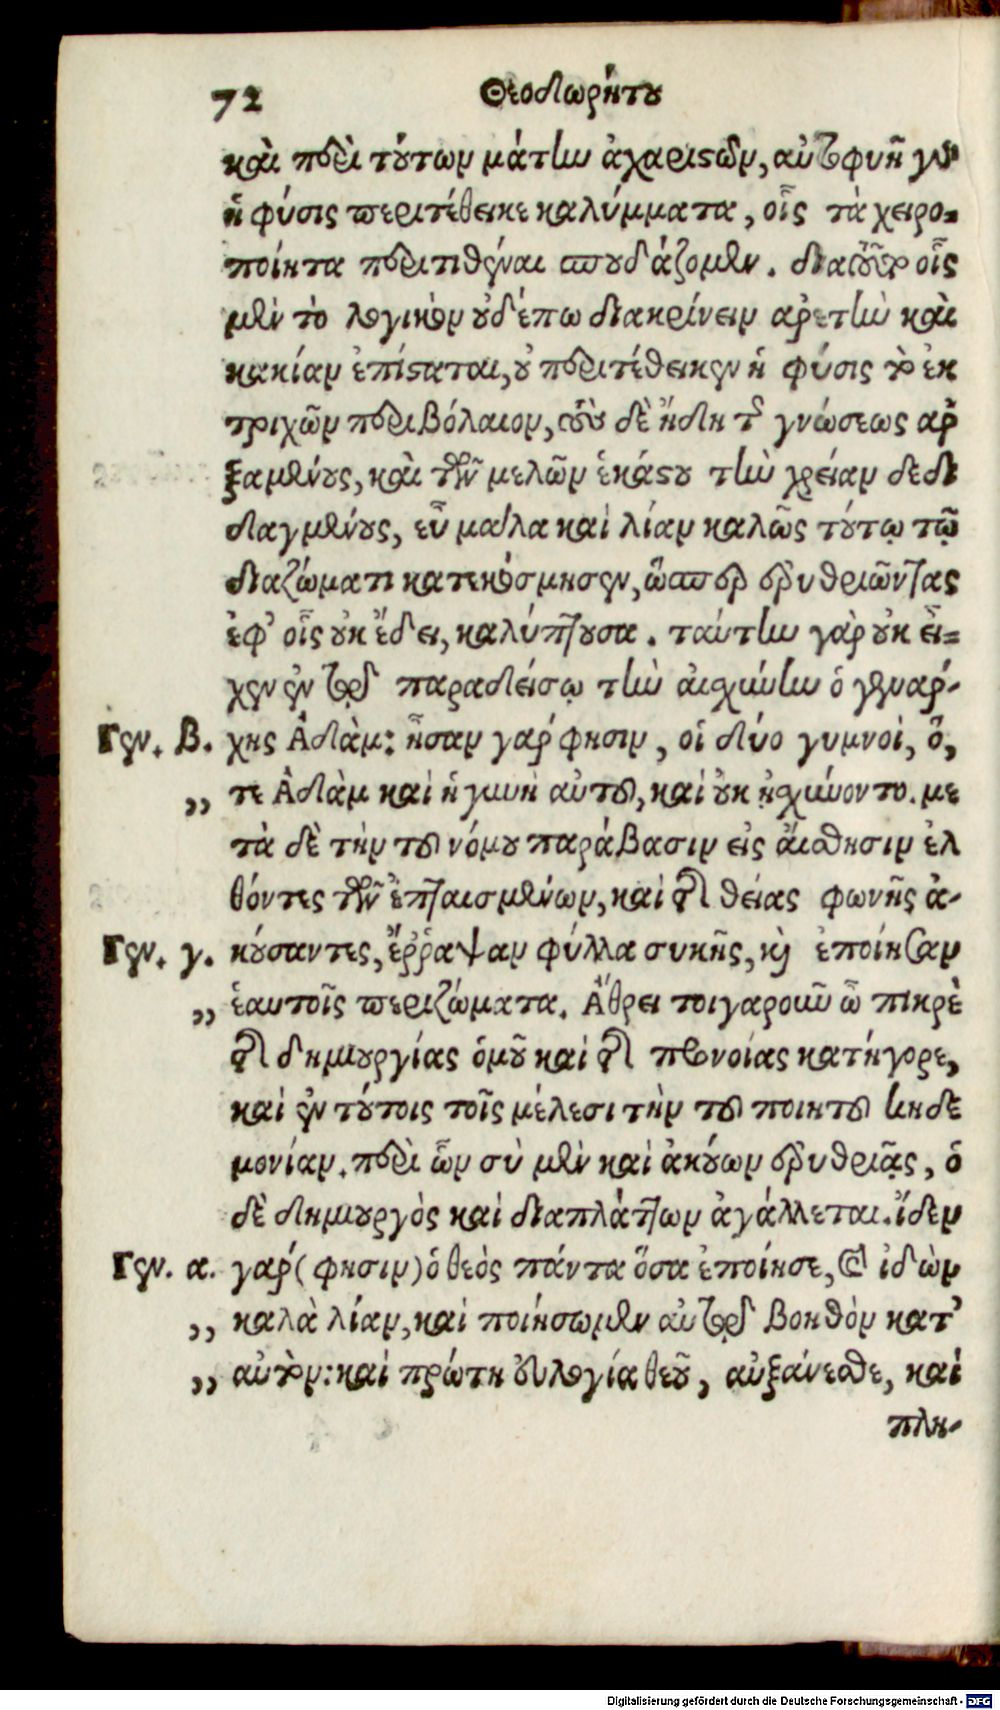 72 Θεοδωρήτου
καὶ περὶ τούτων μάτην ἀχαριστῶν, αὐτοφυῆ γὰρ
ἡ φύσις περιτέθεικε καλύμματα, οἷς τὰ χειρο-
ποίητα περιτιθέναι σπουδάζομεν. διατοῦτο οἷς
μὲν τὸ λογικὸν οὐδέπω διακρίνειν ἀρετὴν καὶ
κακίαν ἐπίσταται, οὐ περιτέθεικεν ἡ φύσις τὸ ἐκ
τριχῶν περιβόλαιον, τοὺς δὲ ἤδη τῆς γνώσεως ἀρ
ξαμένους, καὶ τῶν μελῶν ἑκάστου τὴν χρείαν δεδι
δαγμένους, εὖ μάλα καὶ λίαν καλῶς τούτῳ τῷ
διαζώματι κατεκόσμησεν, ὥσπερ ἐρυθριῶντας
ἐφ' οἷς οὐκ ἔδει, καλύπτουσα. ταύτην γὰρ οὐκ εἶ-
χεν ἐν τῷ παραδείσῳ τὴν αἰσχύνην ὁ γενάρ-
Γεν. β. χης Ἀδὰμ: ἦσαν γάρ φησιν, οἱ δύο γυμνοὶ, ὅ,
,, τε Ἀδὰμ καὶ ἡ γυνὴ αὐτοῦ, καὶ οὐκ ᾐσχύνοντο. με
τὰ δὲ τὴν τοῦ νόμου παράβασιν εἰς αἴσθησιν ἐλ
θόντες τῶν ἐπταισμένων, καὶ τῆς θείας φωνῆς ἀ-
Γεν. γ. κούσαντες, ἔῤῥαψαν φύλλα συκῆς, καὶ ἐποίησαν
,, ἑαυτοῖς περιζώματα. Ἄθρει τοιγαροῦν ὦ πικρὲ
τῆς δημιουργίας ὁμοῦ καὶ τῆς προνοίας κατήγορε,
καὶ ἐν τούτοις τοῖς μέλεσι τὴν τοῦ ποιητοῦ κηδε
μονίαν. περὶ ὧν σὺ μὲν καὶ ἀκούων ἐρυθριᾷς, ὁ
δὲ δημιουργὸς καὶ διαπλάττων ἀγάλλεται. ἴδεν
Γεν. α. γάρ (φησιν) ὁ θεὸς πάντα ὅσα ἐποίησε, καὶ ἰδὼν
,, καλὰ λίαν, καὶ ποιήσωμεν αὐτῷ βοηθὸν κατ'
,, αὐτόν: καὶ πρώτη εὐλογία θεοῦ, αὐξάνεσθε, καὶ
πλη-
Digitalisierung gefördert durch die Deutsche Forschungsgemeinschaft - DFG